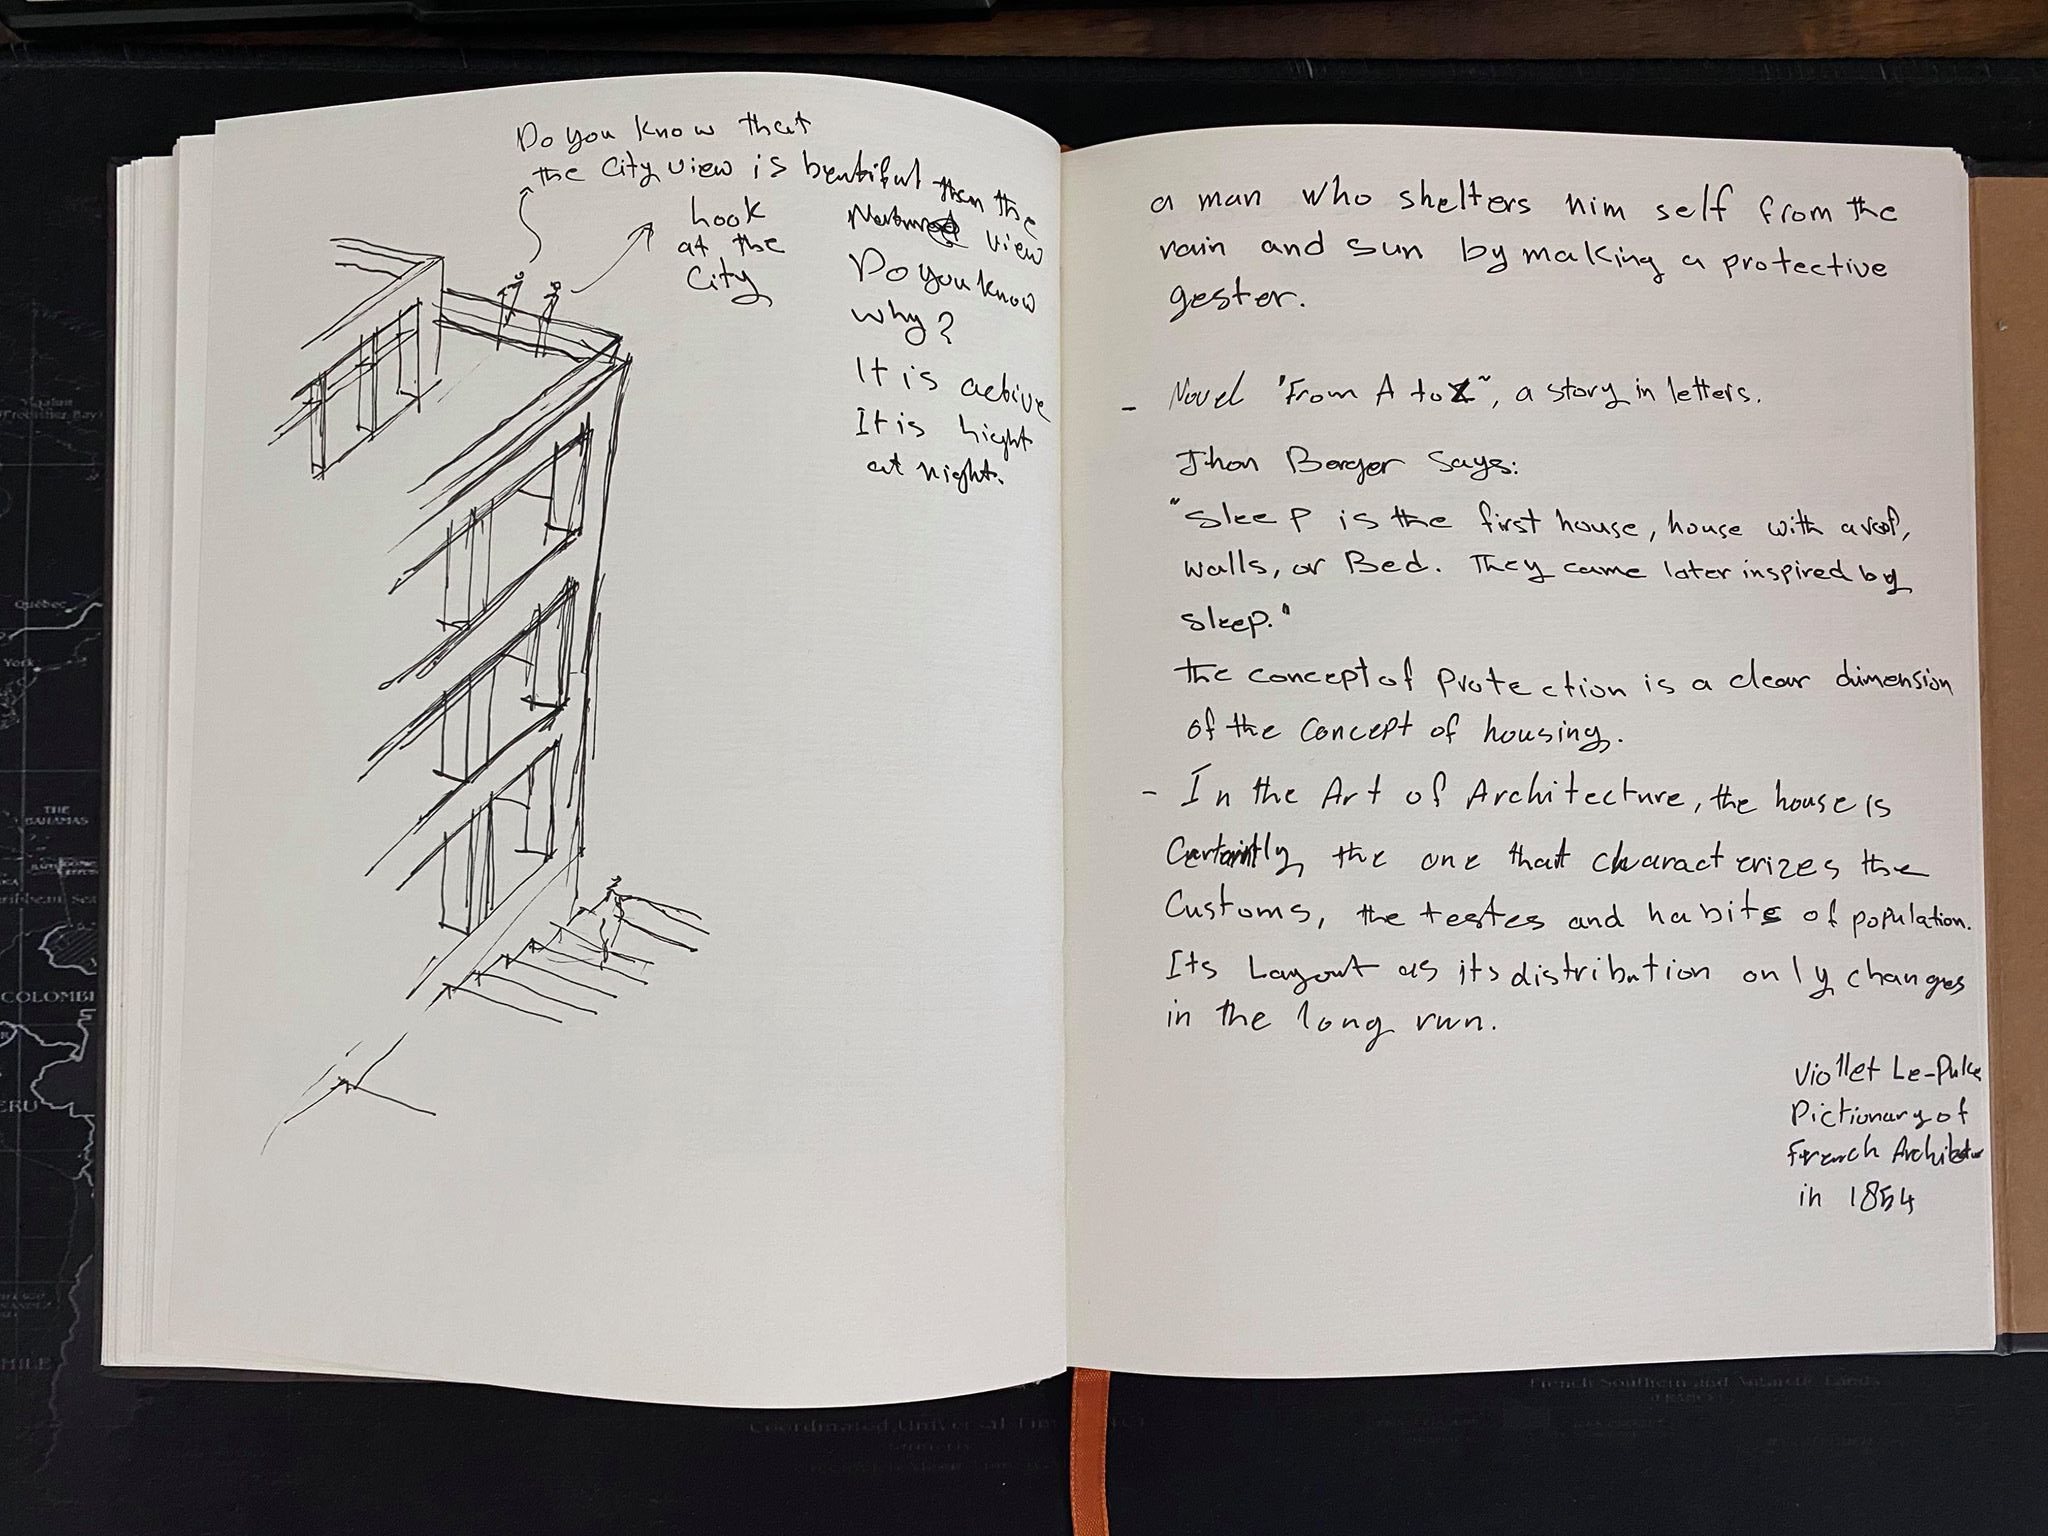 Do you know that
the City view is beutiful then the
view
Look
at the
City
Do you know
why?
It is active
It is hight
at night.
a man who shelters him self from the
rain and sun by making a protective
gester.
- Novel "From A to Z", a story in letters.
Jhon Berger Says:
"Sleep is the first house, house with a roof,
walls, or Bed. They came later inspired by
sleep."
the concept of protection is a clear dimension
of the concept of housing.
- In the Art of Architecture, the house is
Certaintly the one that characterizes the
Customs, the testes and habits of population.
Its Layout as its distribution only changes
in the long run.
Viollet Le-Duke
Dictionary of
French
in 1854
Québec
York
THE
BAHAMAS
COLOMBI
ERU
HILE
Coordinated Universal Tim
French Southern and Antarctic Lands